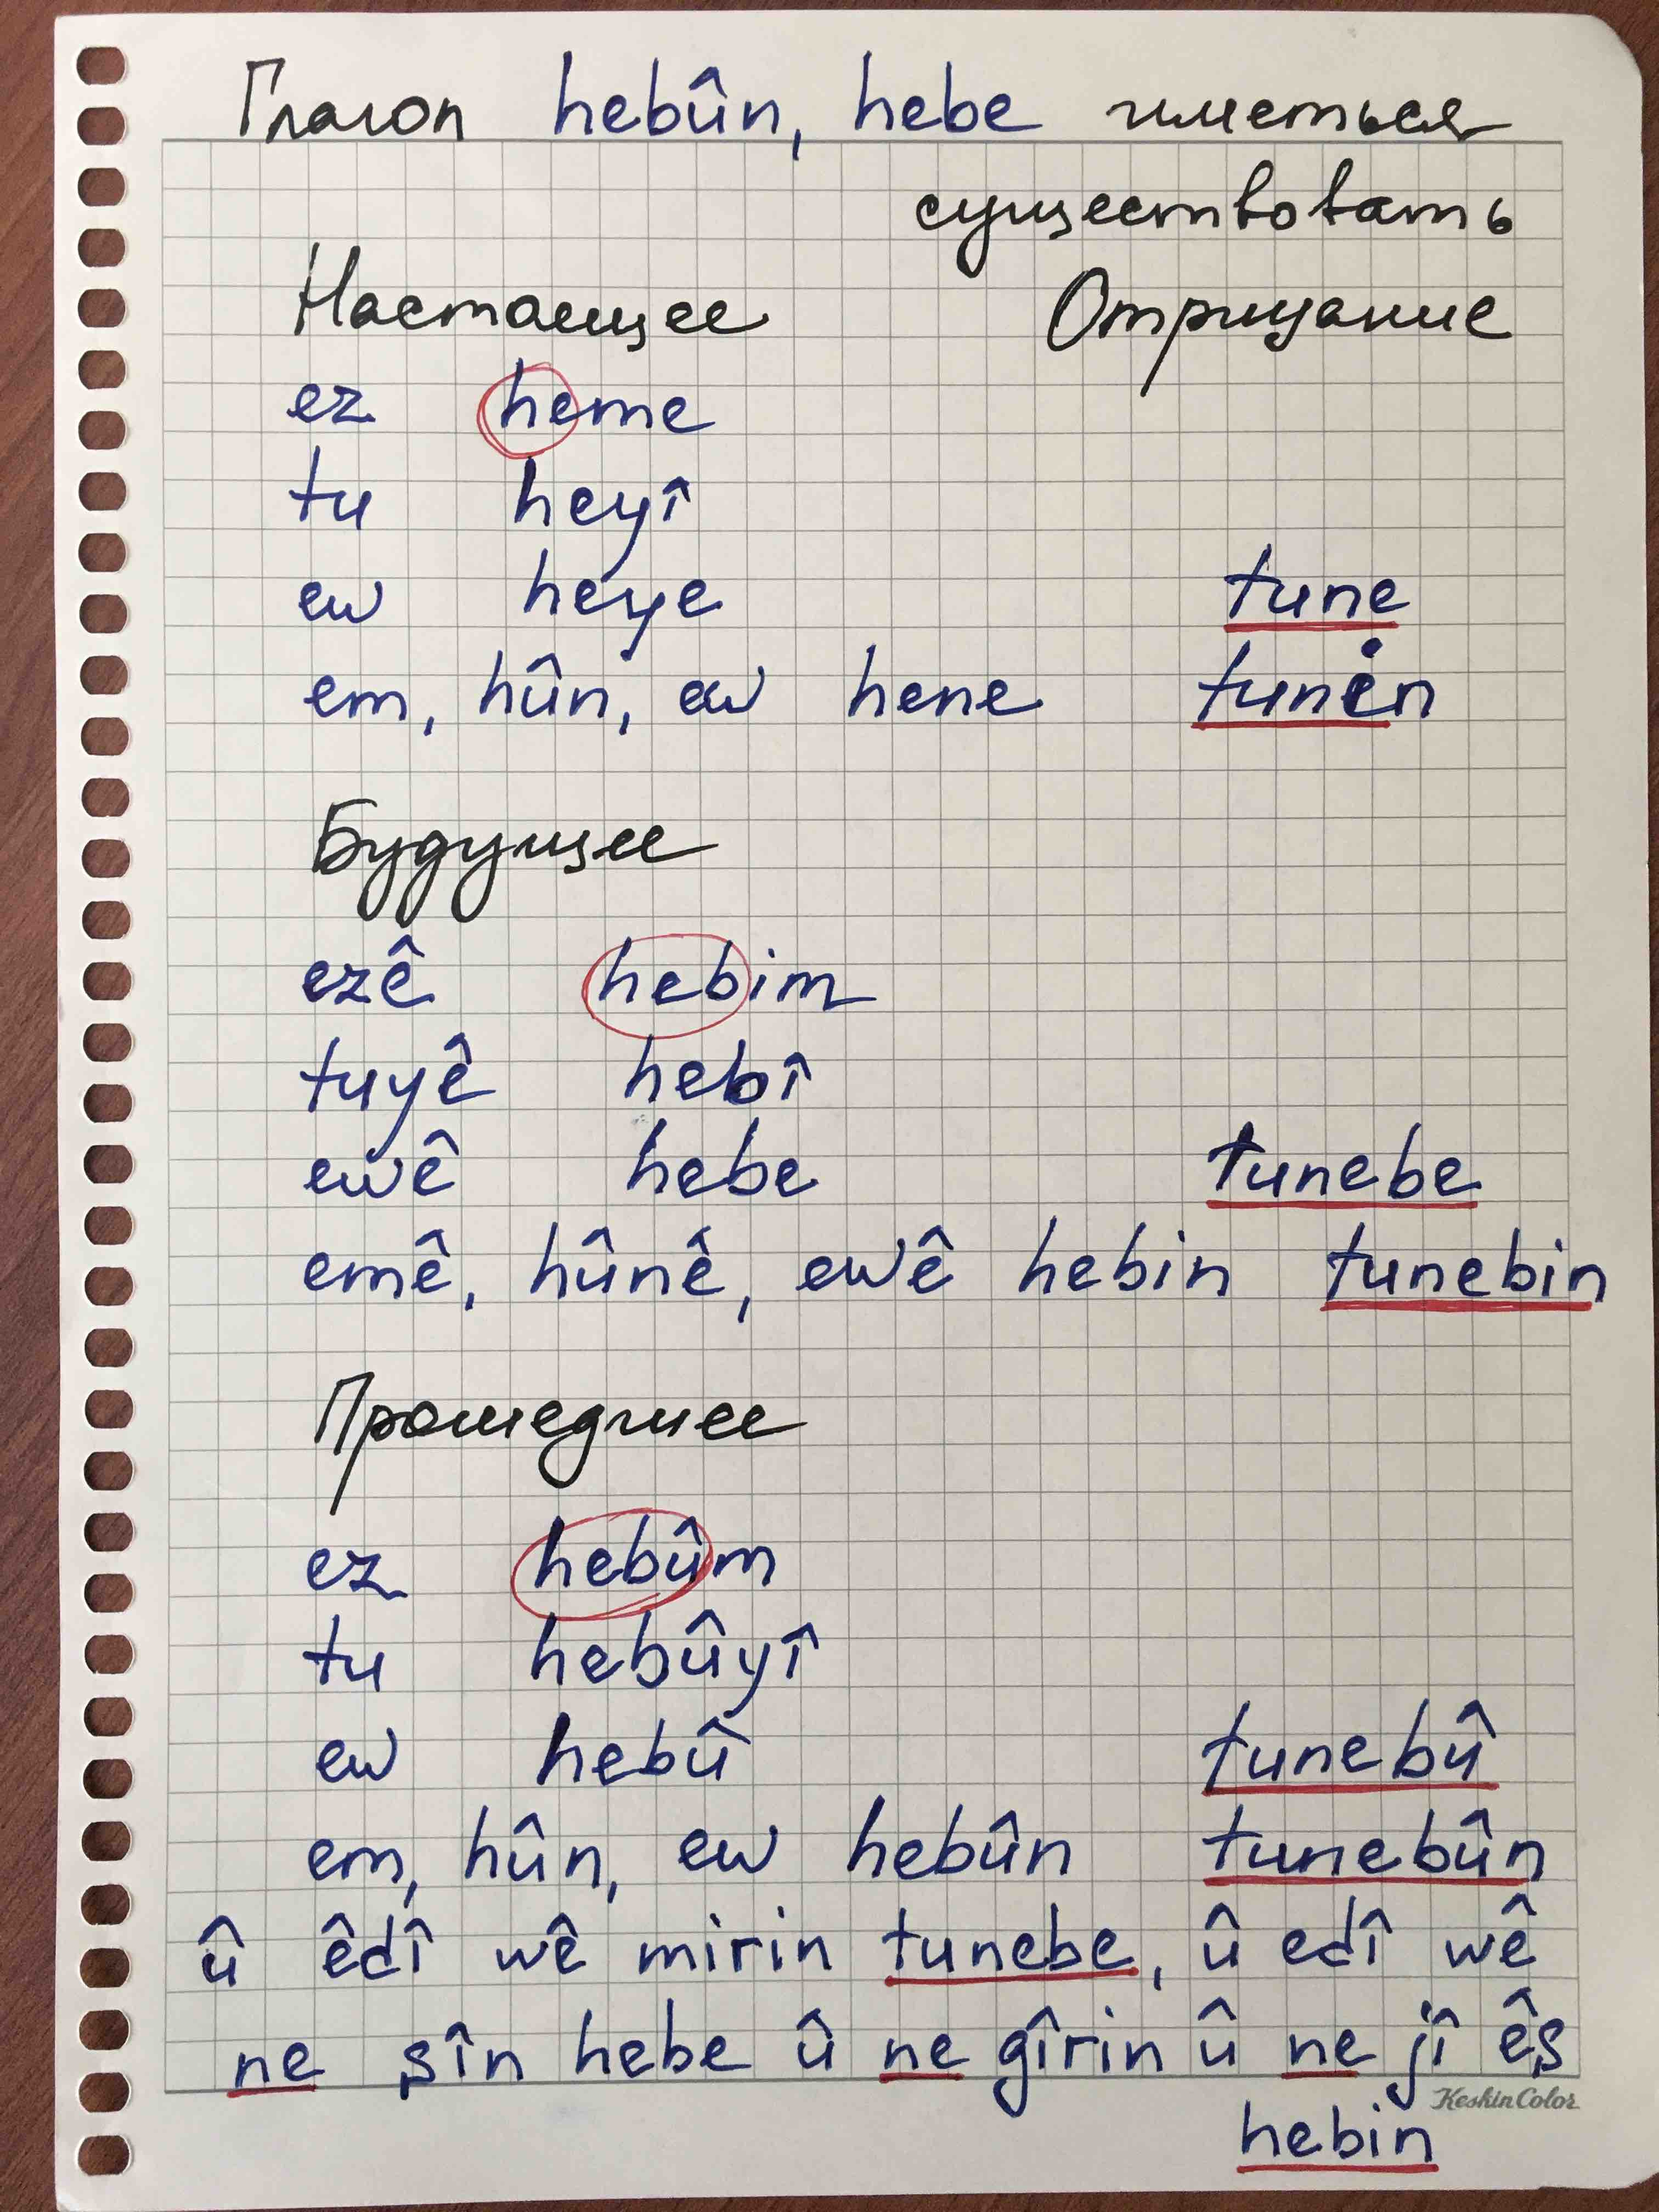 Глагол hebûn, hebe иметься
существовать
Настоящее Отрицание
ez heme
tu heyî
ew heye tune
em, hûn, ew hene tunin
Будущее
ezê hebim
tuyê hebî
ewê hebe tunebe
emê, hûnê, ewê hebin tunebin
Прошедшее
ez hebûm
tu hebûyî
ew hebû tunebû
em, hûn, ew hebûn tunebûn
û êdî wê mirin tunebe, û edî wê
ne şîn hebe û ne gîrin û ne jî êş
KeskinColor
hebin